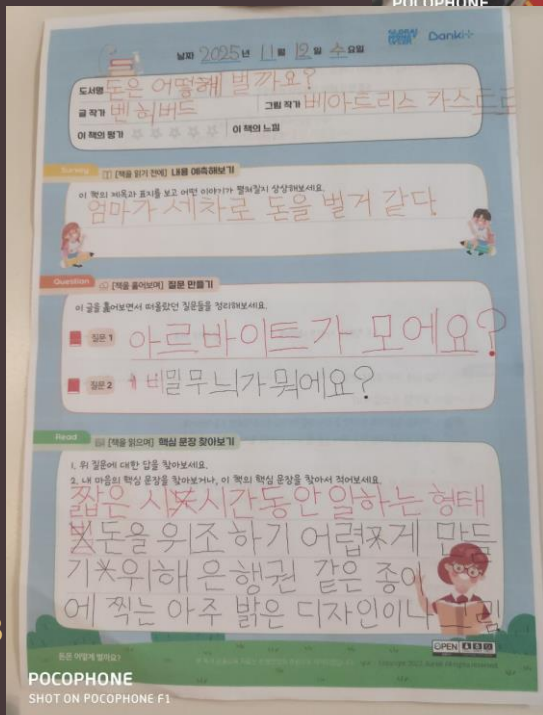 POCOPHONE
Danki+
날짜 2025년 11월 12일 수요일
도서명 돈은 어떻해 벌까요?
글 작가 벤 허버드 그림 작가 베아트리스 카스트로
이 책의 평가 ☆☆☆☆☆ 이 책의 느낌
Survey [책을 읽기 전에] 내용 예측해보기
이 책의 제목과 표지를 보고 어떤 이야기가 펼쳐질지 상상해보세요.
엄마가 세차로 돈을 벌거 같다
Question [책을 훑어보며] 질문 만들기
이 글을 훑어보면서 떠올랐던 질문들을 정리해보세요.
질문 1 아르바이트가 모에요?
질문 2 비밀무늬가 뭐에요?
Read [책을 읽으며] 핵심 문장 찾아보기
1. 위 질문에 대한 답을 찾아보세요.
2. 내 마음의 핵심 문장을 찾아보거나, 이 책의 핵심 문장을 찾아서 적어보세요.
짧은 시 시간동안 일하는 형태
돈을 위조하기 어렵게 만들
기 위해 은행권 같은 종이
에 찍는 아주 밝은 디자인이나 그림
OPEN
돈은 어떻게 벌까요?
POCOPHONE
SHOT ON POCOPHONE F1